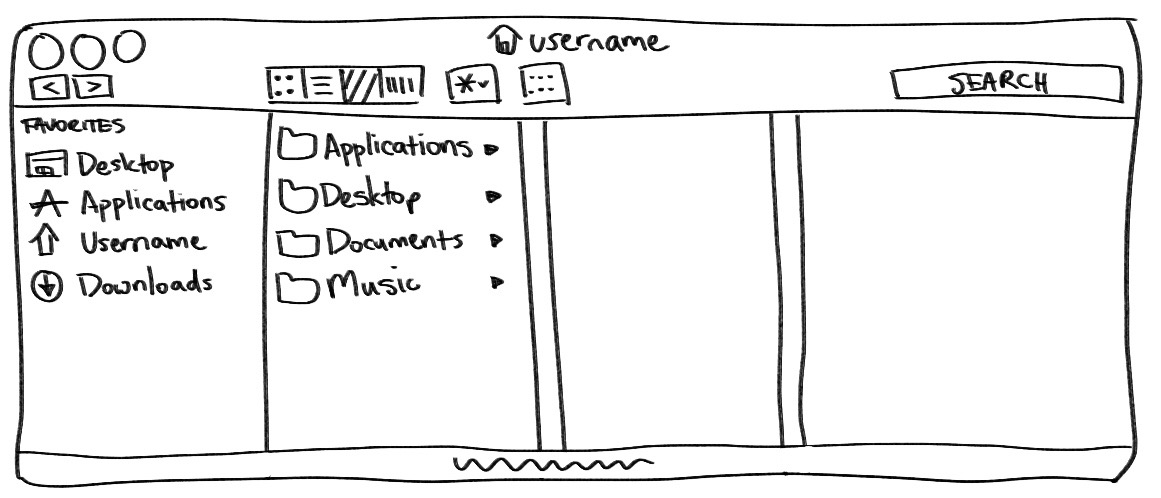 username
SEARCH
FAVORITES
Desktop
Applications
Username
Downloads
Applications
Desktop
Documents
Music